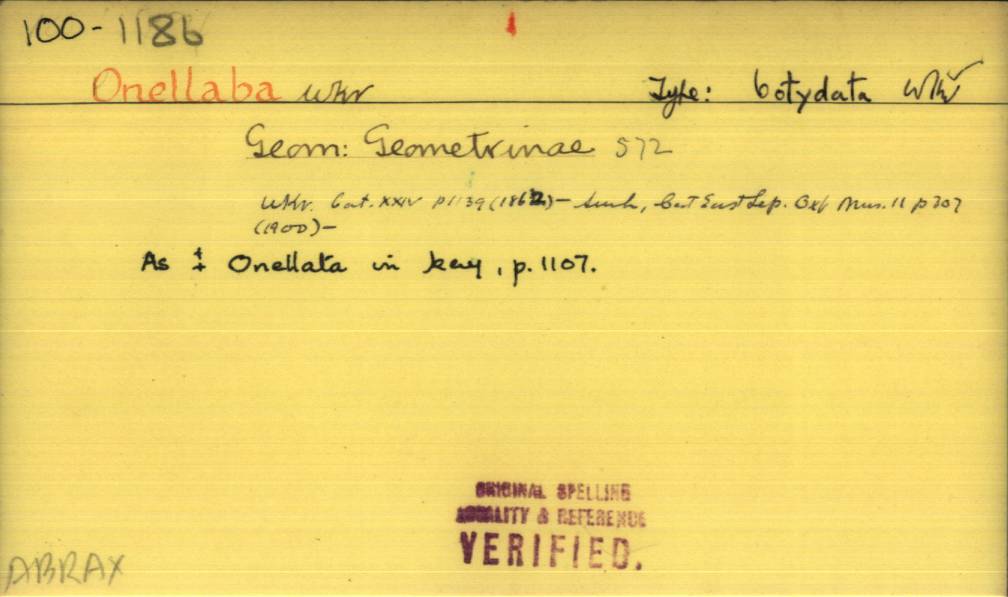 100-1186
Onellaba Wkr Type: botydata Wkr
Geom: Geometrinae 572
Wkr. Cat. XXIV p1139 (1862)— Swinh, Cat East Lep. Oxf Mus. 11 p 307
(1900)—
As ‡ Onellata in key, p. 1107.
ORIGINAL SPELLING
LOCALITY & REFERENCE
VERIFIED.
ABRAX